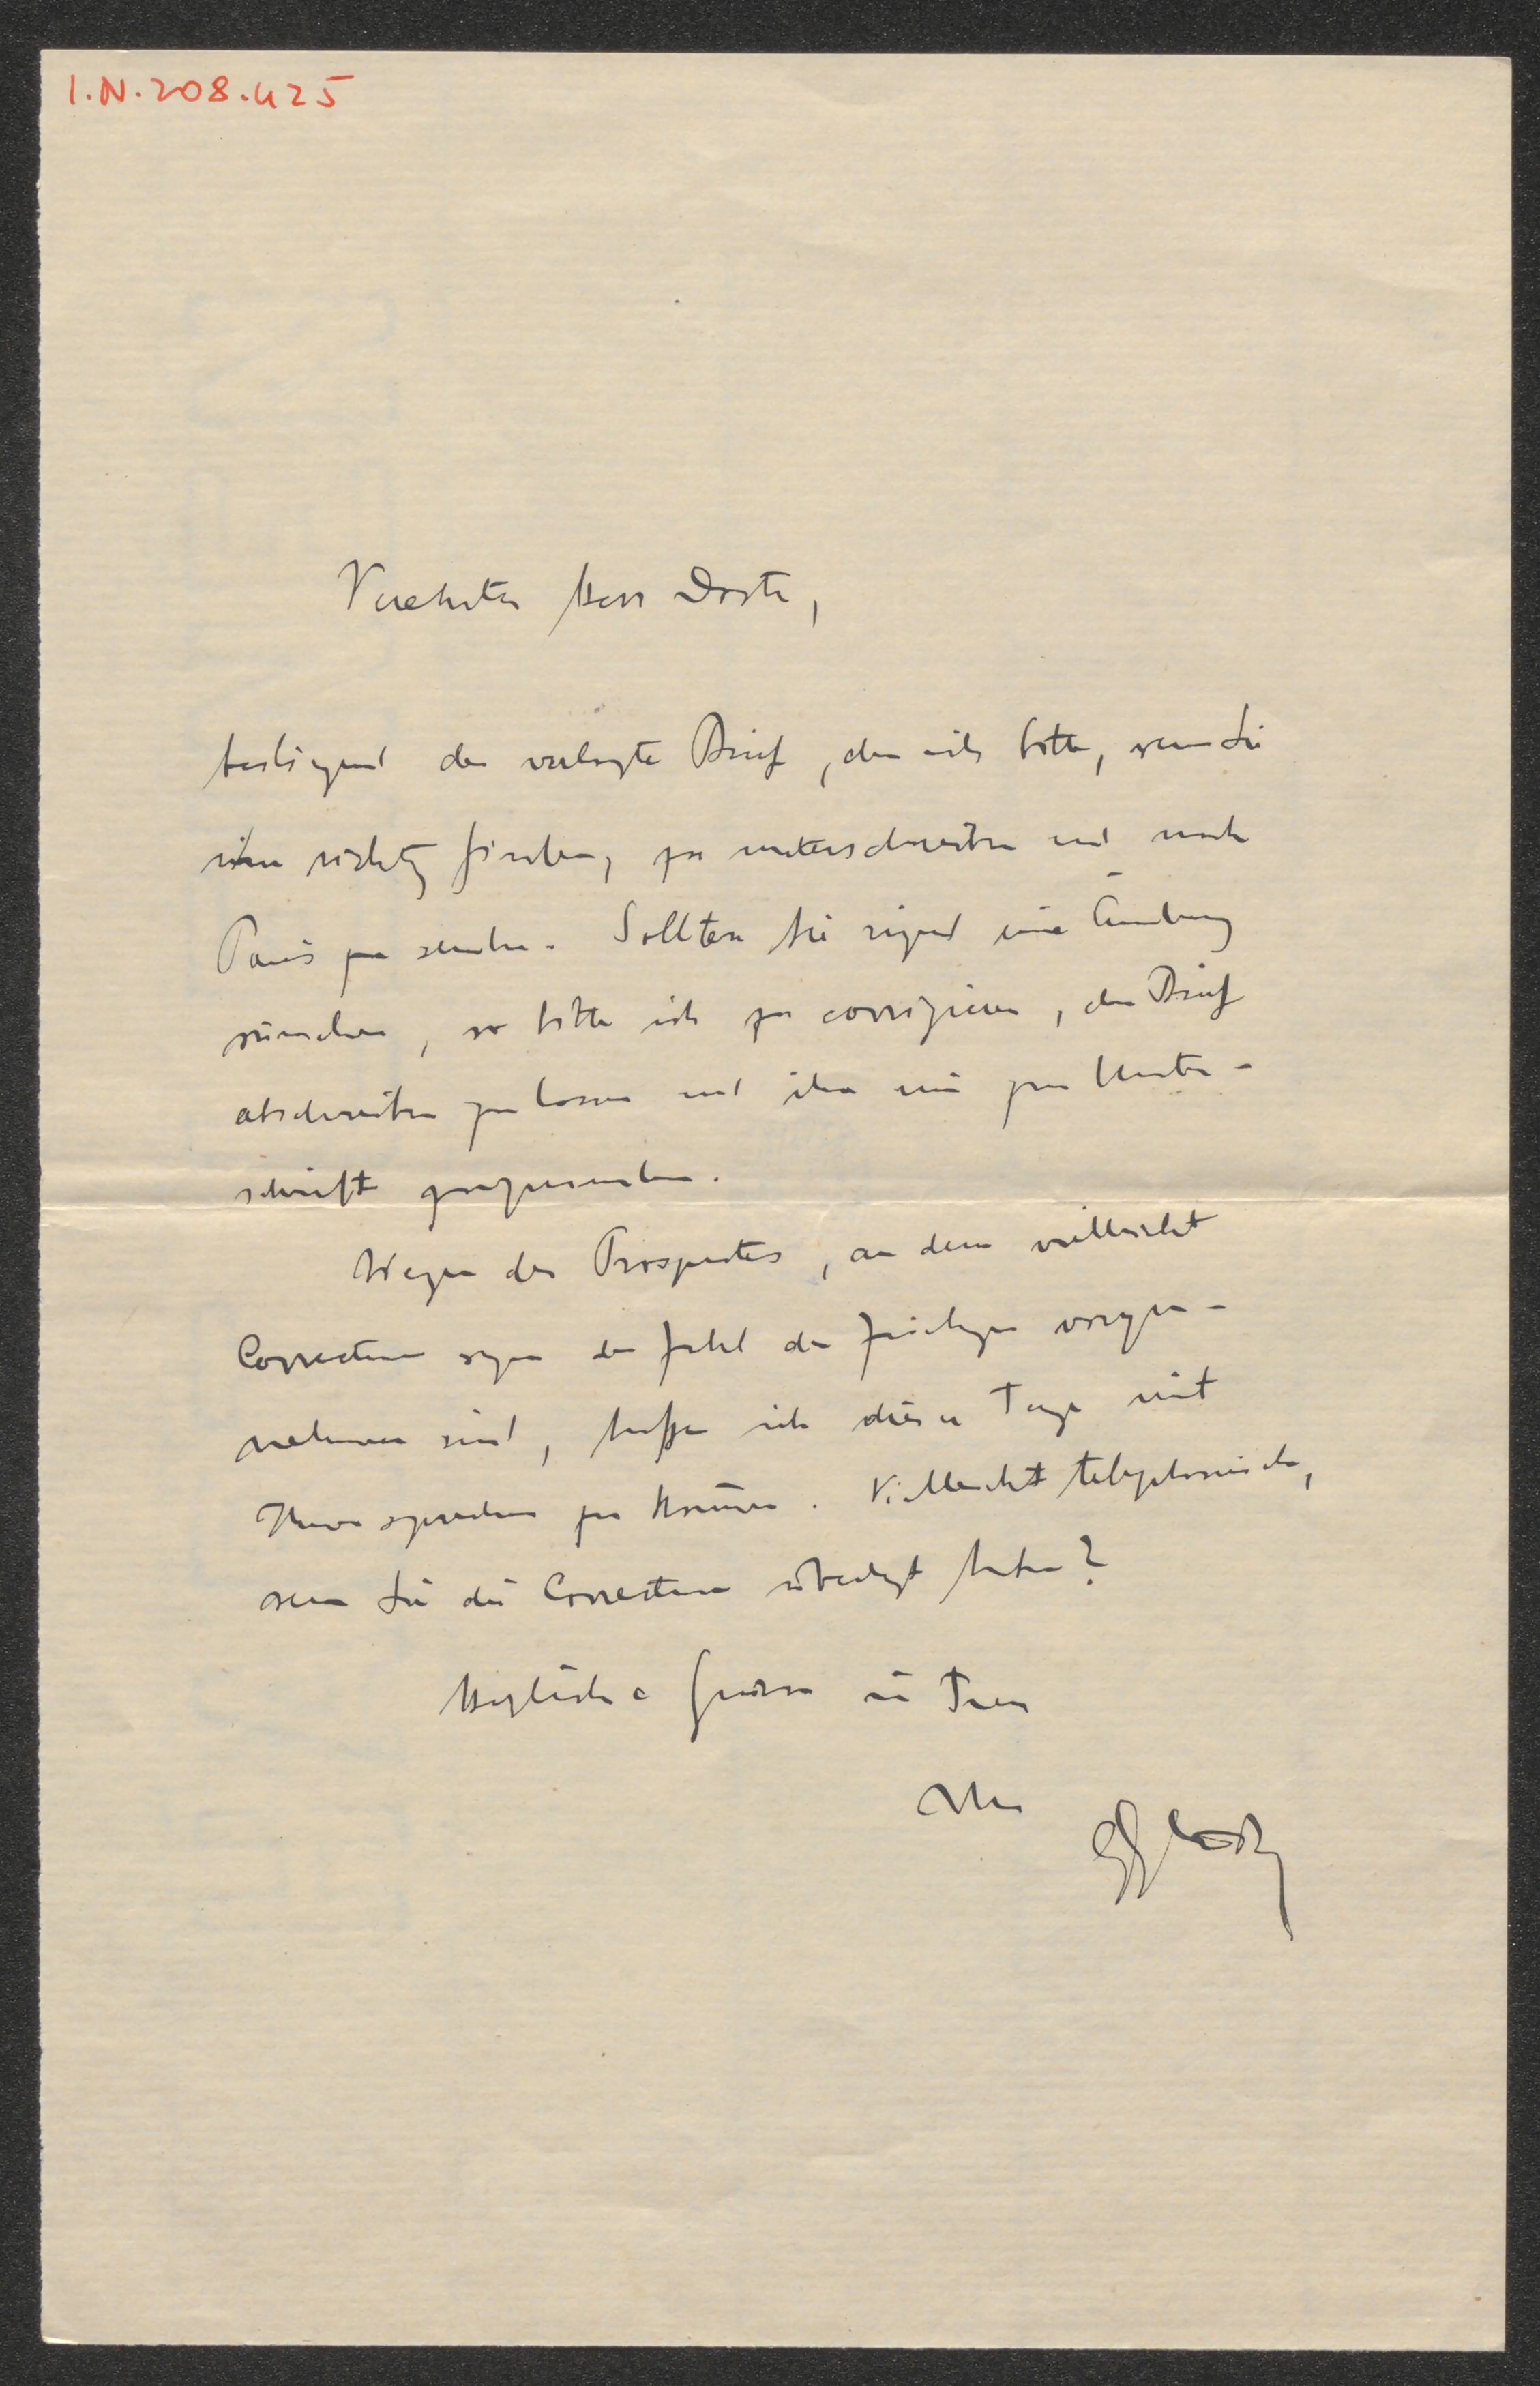 I.N.208.425
Verehrter Herr Doctor,
beiliegend der verlangte Brief, den ich bitte, wenn Sie
ihn richtig finden, zu unterschreiben und nach
Paris zu senden. Sollten Sie irgend eine Änderung
wünschen, so bitte ich zu corrigieren, den Brief
abschreiben zu lassen und ihn mir zur Unter-
schrift zuzusenden.
Wegen des Prospectes, an dem vielleicht
Correcturen wegen der Zahl der vorzu-
nehmen sind, hoffe ich dieser Tage mit
Ihnen sprechen zu können. Vielleicht telephonisch,
wenn Sie die Correcturen erledigt haben?
Herzliche Grüsse in Treue
Ihr